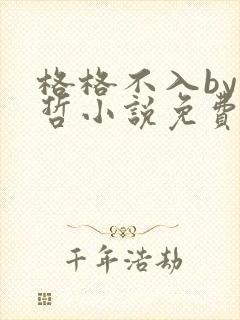 格格不入by
哲小說免費
千年浩劫